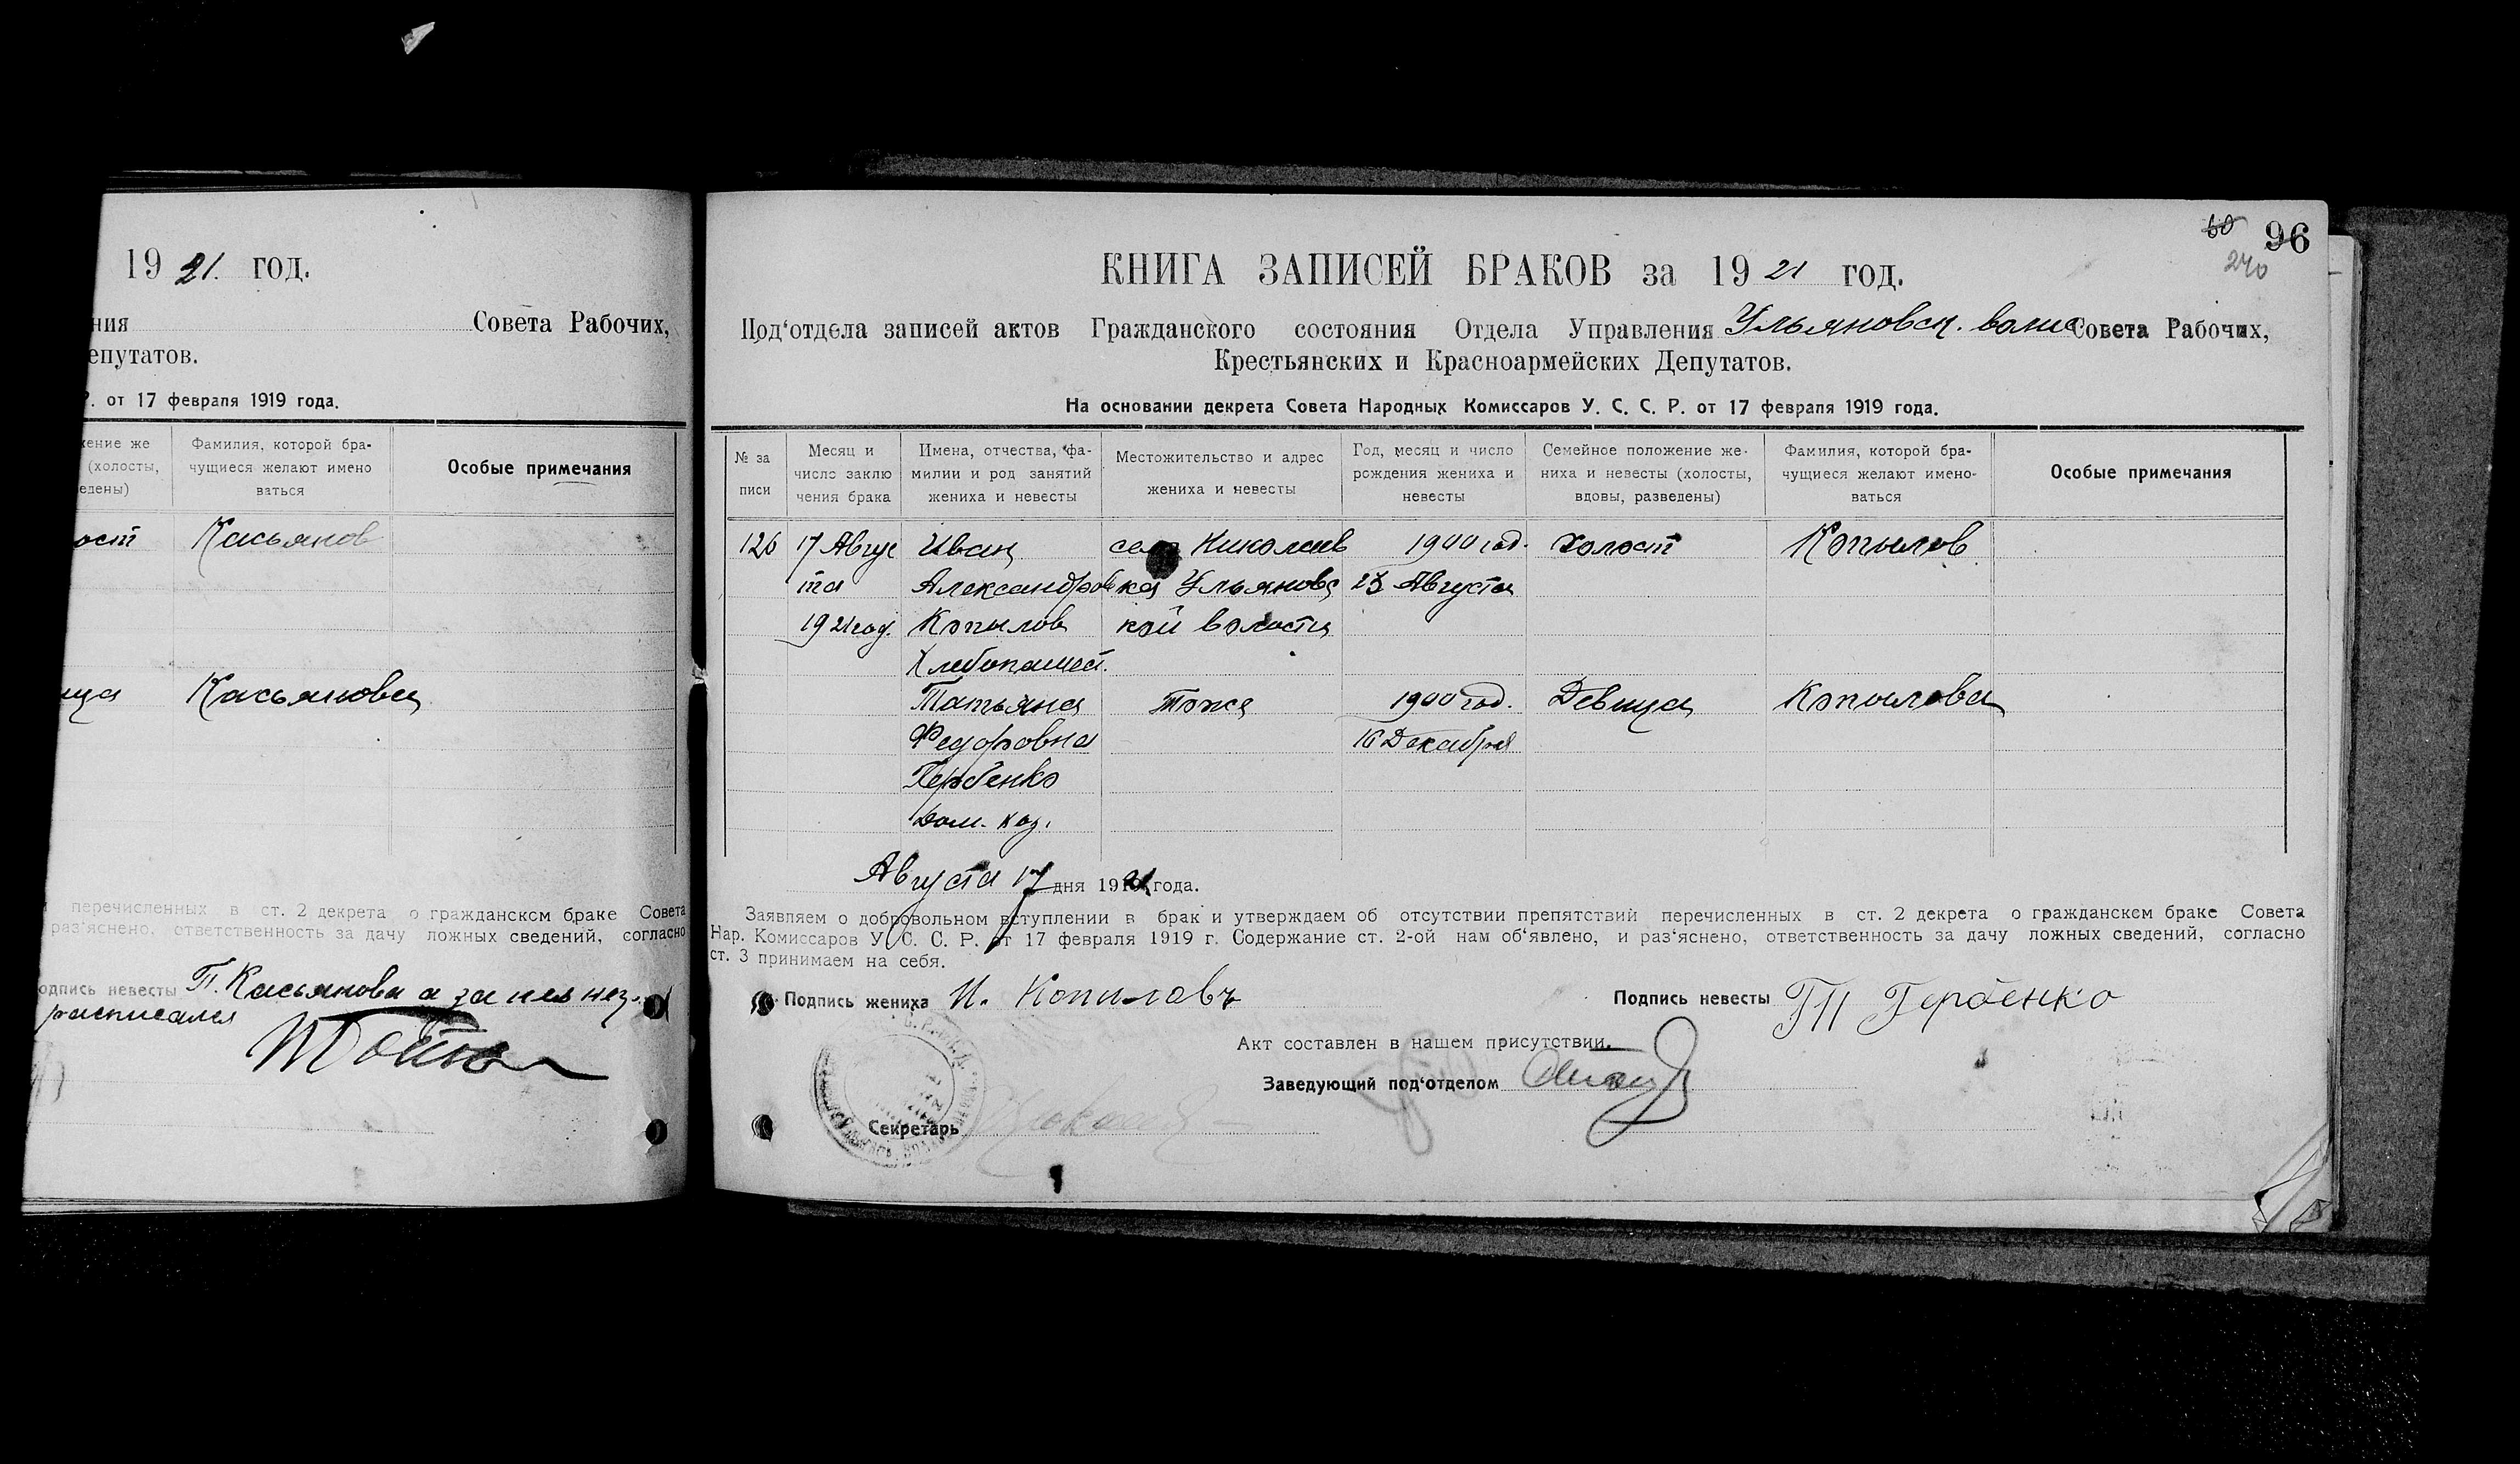 19 21. год.
ния Совета Рабочих,
епутатов.
Р. от 17 февраля 1919 года.
жение же
(холосты,
едены)
Фамилия, которой бра-
чущиеся желают имено
ваться
Особые примечания
ост Касьянов
ица Касьянова
перечисленных в ст. 2 декрета о гражданском браке Совета
раз'яснено, ответственность за дачу ложных сведений, согласно
одпись невесты П. Касьянова а за нея
расписался
60 96
240
КНИГА ЗАПИСЕЙ БРАКОВ за 19 21 год.
Под'отдела записей актов Гражданского состояния Отдела Управления Ульяновск. волис Совета Рабочих,
Крестьянских и Красноармейских Депутатов.
На основании декрета Совета Народных Комиссаров У. С. С. Р. от 17 февраля 1919 года.
№ за
писи
Месяц и
число заклю
чения брака
Имена, отчества, фа-
милии и род занятий
жениха и невесты
Местожительство и адрес
жениха и невесты
Год, месяц и число
рождения жениха и
невесты
Семейное положение же-
ниха и невесты (холосты,
вдовы, разведены)
Фамилия, которой бра-
чущиеся желают имено-
ваться
Особые примечания
126 17 Авгус Иван село Николаев 1900 год. Холост Копылов
та Александров ка Ульяновс 23 Августа
1921 год. Копылов кой волости
Хлебопашец.
Татьяна Тоже 1900 год. Девица Копылова
Федоровна 16 Декабря
Гербенко
Дом. хоз.
Августа 17 дня 1921 года.
Заявляем о добровольном вступлении в брак и утверждаем об отсутствии препятствий перечисленных в ст. 2 декрета о гражданском браке Совета
Нар. Комиссаров У. С. С. Р. от 17 февраля 1919 г. Содержание ст. 2-ой нам об'явлено, и раз'яснено, ответственность за дачу ложных сведений, согласно
ст. 3 принимаем на себя.
Подпись жениха И. Копиловъ Подпись невесты Гербенко
Акт составлен в нашем присутствии.
Заведующий под'отделом
Секретарь